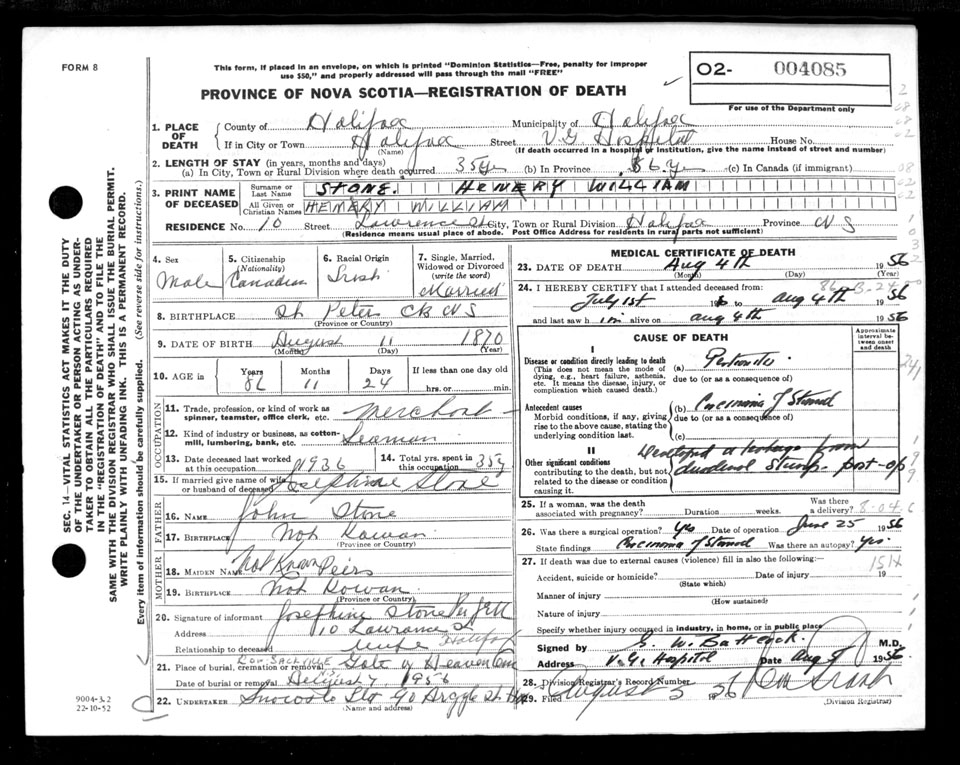 FORM 8
This form, if placed in an envelope, on which is printed "Dominion Statistics—Free, penalty for improper
use $50," and properly addressed will pass through the mail "FREE"
O2- 004085
For use of the Department only
PROVINCE OF NOVA SCOTIA—REGISTRATION OF DEATH
1. PLACE OF DEATH
County of Halifax Municipality of Halifax
If in City or Town Halifax Street V.G. Hospital House No.
(Name) (If death occurred in a hospital or institution, give the name instead of street and number)
2. LENGTH OF STAY (in years, months and days)
(a) In City, Town or Rural Division where death occurred 35 yrs (b) In Province 86 y (c) In Canada (if immigrant)
3. PRINT NAME OF DECEASED
Surname or Last Name STONE. HENERY WILLIAM
All Given or Christian Names HENERY WILLIAM
RESIDENCE No. 10 Street Lawrence St City, Town or Rural Division Halifax Province N S
(Residence means usual place of abode. Post Office Address for residents in rural parts not sufficient)
4. Sex Male
5. Citizenship (Nationality) Canadian
6. Racial Origin Irish
7. Single, Married, Widowed or Divorced (write the word) Married
8. BIRTHPLACE St Peters CB NS
(Province or Country)
9. DATE OF BIRTH August 11 1870
(Month) (Day) (Year)
10. AGE in Years 86 Months 11 Days 24 If less than one day old
hrs. or min.
OCCUPATION
11. Trade, profession, or kind of work as spinner, teamster, office clerk, etc. Merchant
12. Kind of industry or business, as cotton-mill, lumbering, bank, etc. Seaman
13. Date deceased last worked at this occupation 1936
14. Total yrs. spent in this occupation 35 y
15. If married give name of wife or husband of deceased Josephine Stone
FATHER
16. NAME John Stone
17. BIRTHPLACE Not Kowan
(Province or Country)
MOTHER
18. MAIDEN NAME Not Known Peers
19. BIRTHPLACE Not Kowan
(Province or Country)
20. Signature of informant Josephine Stone Per
Address 10 Lawrance St Halifax
Relationship to deceased Wife
21. Place of burial, cremation or removal Low. SACKVILLE Gate of Heaven Cem
Date of burial or removal August 7 1956
22. UNDERTAKER Snows & Co Ltd 90 Argyle St
(Name and address)
MEDICAL CERTIFICATE OF DEATH
23. DATE OF DEATH Aug 4th 1956
(Month) (Day) (Year)
24. I HEREBY CERTIFY that I attended deceased from:
July 1st to Aug 4th 1956
and last saw him alive on Aug 4th 1956
CAUSE OF DEATH
Approximate interval between onset and death
I
Disease or condition directly leading to death
(This does not mean the mode of dying, e.g., heart failure, asthenia, etc. It means the disease, injury, or complication which caused death.)
(a) Peritonitis
due to (or as a consequence of)
Antecedent causes
Morbid conditions, if any, giving rise to the above cause, stating the underlying condition last.
(b) Carcinoma of Stomach
due to (or as a consequence of)
(c)
II
Other significant conditions
contributing to the death, but not related to the disease or condition causing it.
Developed a leakage from
duodenal stump - post-op
25. If a woman, was the death associated with pregnancy? Duration weeks. Was there a delivery?
26. Was there a surgical operation? Yes Date of operation June 25 1956
State findings Carcinoma of Stomach Was there an autopsy? Yes
27. If death was due to external causes (violence) fill in also the following:
Accident, suicide or homicide? Date of injury 19
(State which)
Manner of injury
(How sustained)
Nature of injury
Specify whether injury occurred in industry, in home, or in public place
Signed by G. W. Battcock. M.D.
Address V.G. Hospital Date Aug 1956
28. Division Registrar's Record Number
29. Filed August 5 1956
(Division Registrar)
SEC. 14—VITAL STATISTICS ACT MAKES IT THE DUTY
OF THE UNDERTAKER OR PERSON ACTING AS UNDER-
TAKER TO OBTAIN ALL THE PARTICULARS REQUIRED
IN THE "REGISTRATION OF DEATH" AND TO FILE THE
SAME WITH THE DIVISION REGISTRAR WHO SHALL ISSUE THE BURIAL PERMIT.
WRITE PLAINLY WITH UNFADING INK. THIS IS A PERMANENT RECORD.
Every item of information should be carefully supplied. (See reverse side for instructions.)
9004-3.2
22-10-52